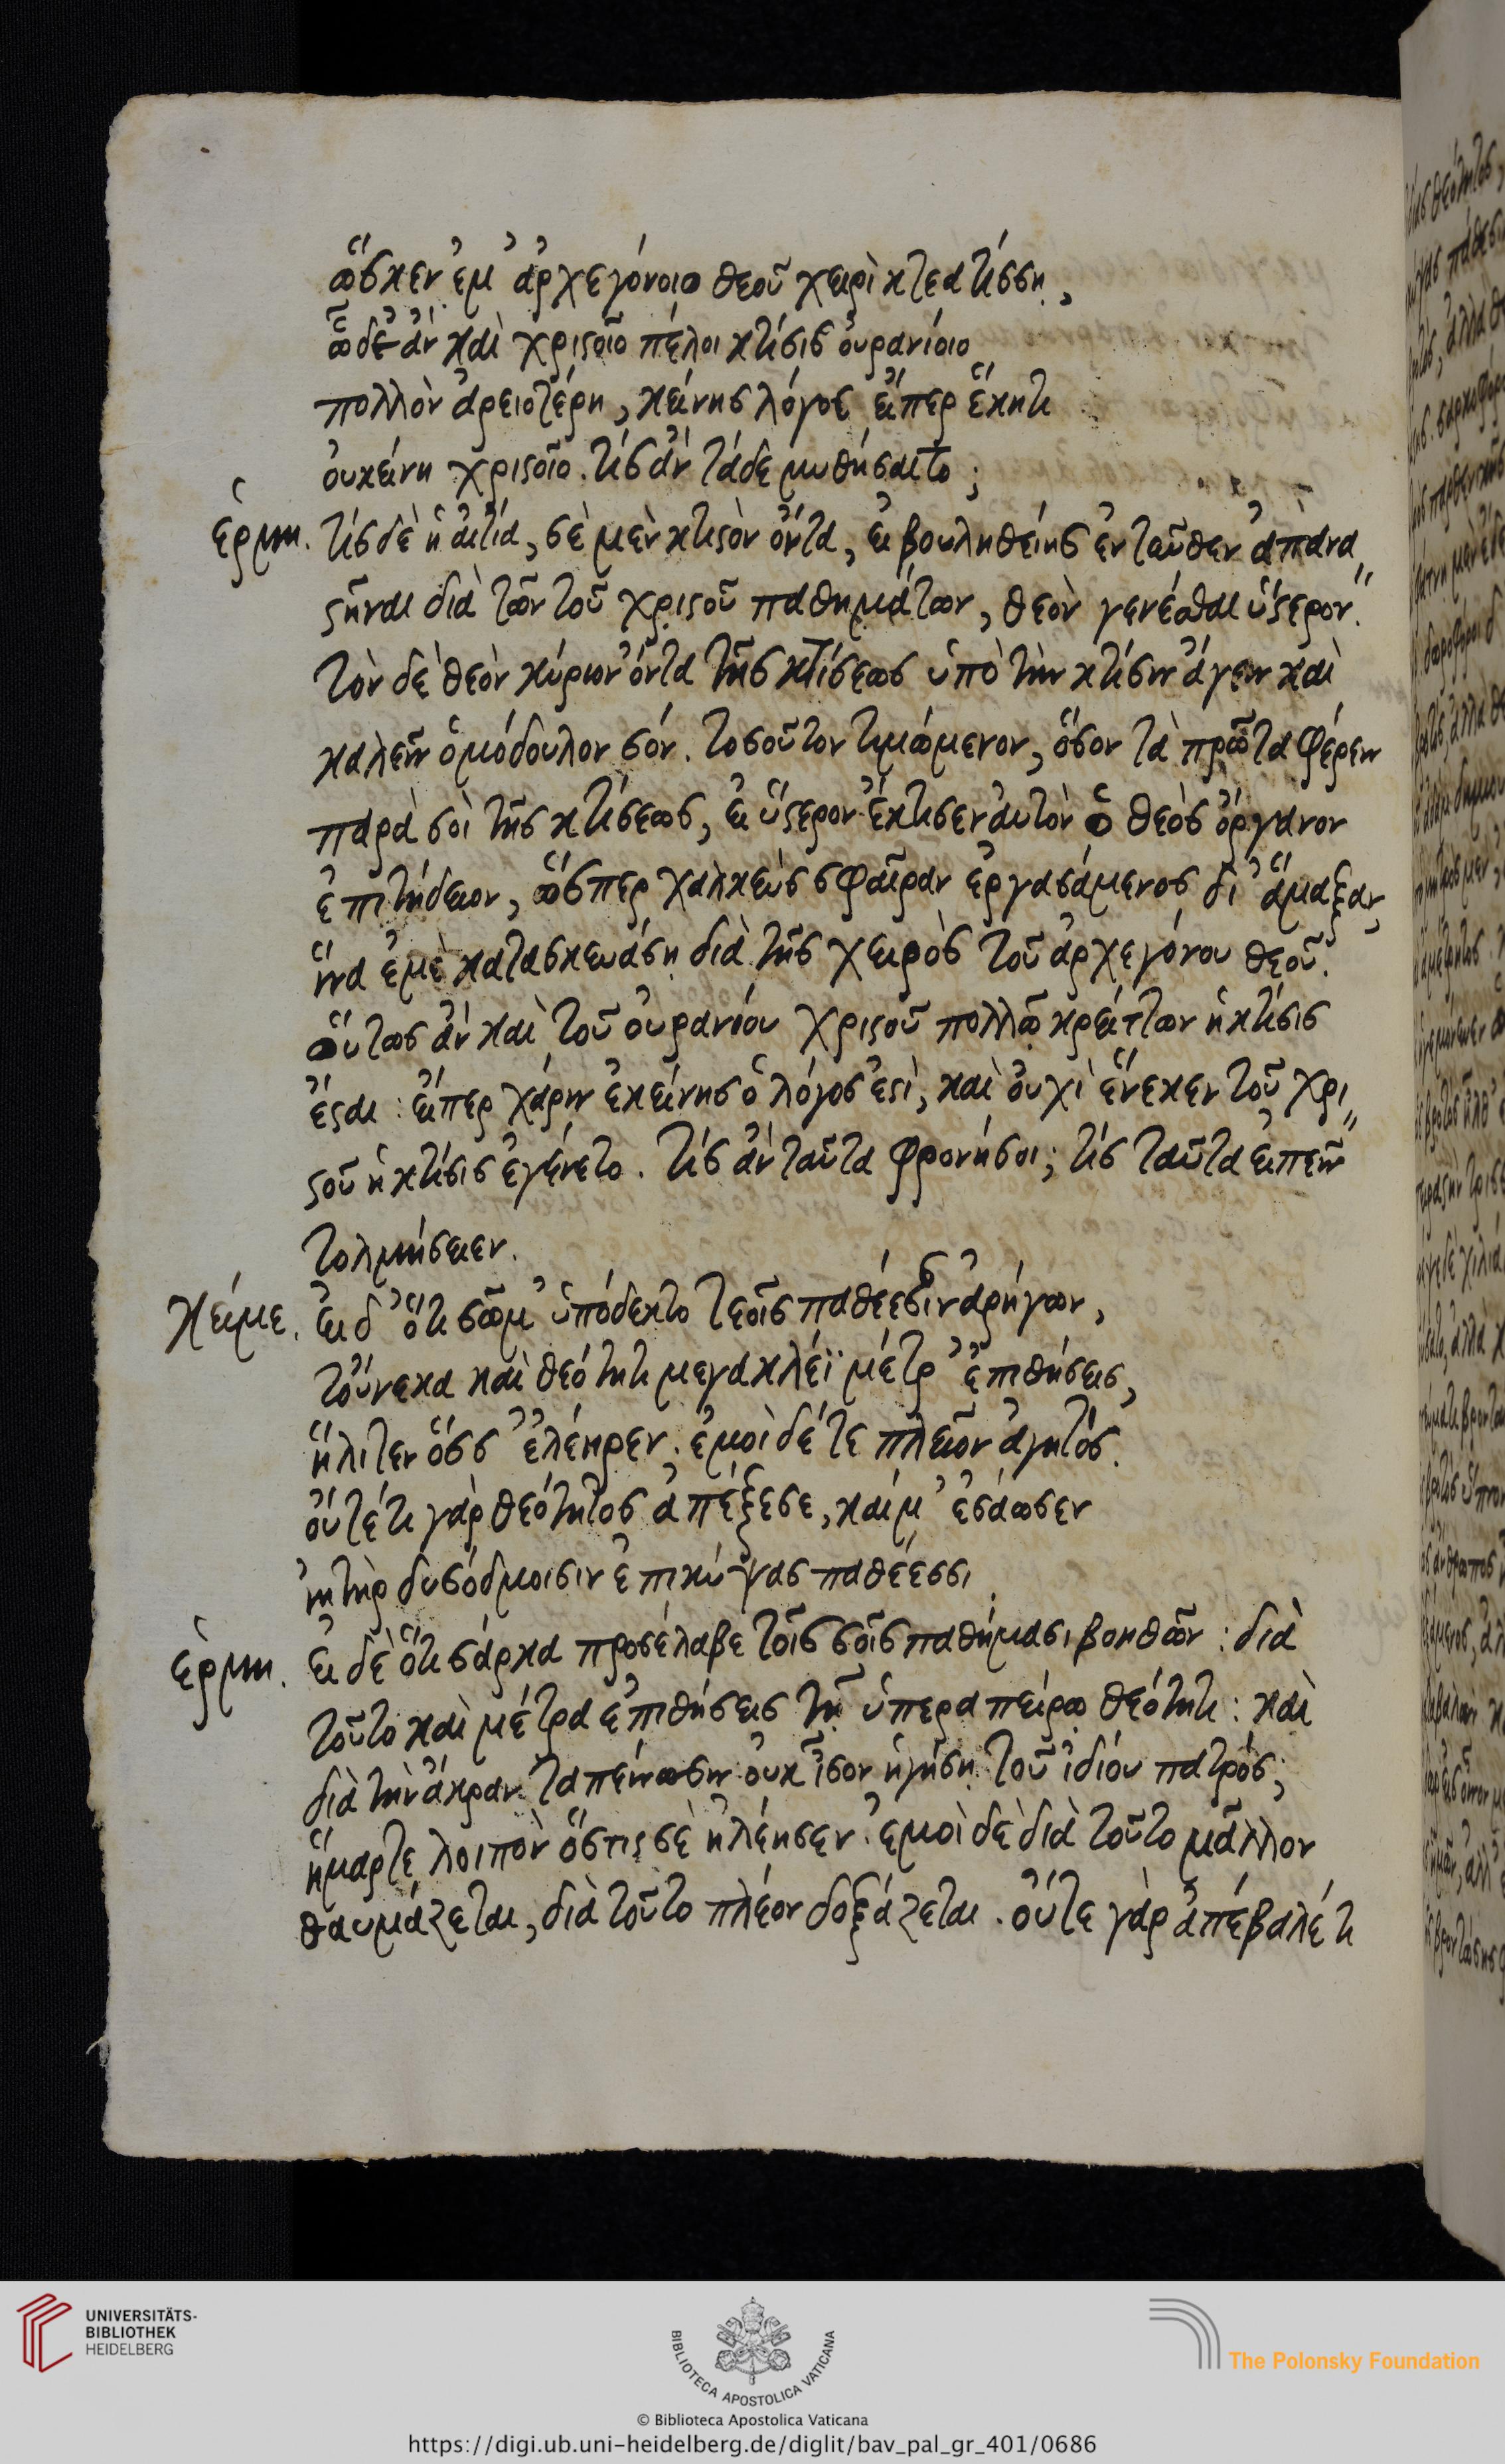 ὥς κεν ἔμ' ἀρχεγόνοιο θεοῦ χειρὶ κτεατίσσῃ,
ὧδε ἂν καὶ χριστοῖο πέλοι κτίσις οὐρανίοιο
πολλὸν ἀρειοτέρη, κείνης λόγος εἴπερ ἕκητι
οὐ κείνη χριστοῖο. τίς ἂν τάδε μυθήσαιτο;
ἑρμη. τίς δὲ ἡ αἰτία, σὲ μὲν κτιστὸν ὄντα, εἰ βουληθείης ἐνταῦθεν ἀπανα„
στῆναι διὰ τῶν τοῦ χριστοῦ παθημάτων, θεὸν γενέσθαι ὕστερον.
τὸν δὲ θεὸν κύριον ὄντα τῆς κτίσεως ὑπὸ τὴν κτίσιν ἄγειν καὶ
καλεῖν ὁμόδουλον σόν. τοσοῦτον τιμώμενον, ὅσον τὰ πρῶτα φέρειν
παρὰ σοὶ τῆς κτίσεως, εἰ ὕστερον ἔκτισεν αὐτὸν ὁ θεὸς ὄργανον
ἐπιτήδειον, ὥσπερ χαλκεὺς σφαῖραν ἐργασάμενος δι' ἅμαξαν,
ἵνα ἐμὲ κατασκευάσῃ διὰ τῆς χειρὸς τοῦ ἀρχεγόνου θεοῦ.
οὕτως ἂν καὶ τοῦ οὐρανίου χριστοῦ πολλῷ κρείττων ἡ κτίσις
ἔσται: εἴπερ χάριν ἐκείνης ὁ λόγος ἐστὶ, καὶ οὐχὶ ἕνεκεν τοῦ χρι„
στοῦ ἡ κτίσις ἐγένετο. τίς ἂν ταῦτα φρονήσοι; τίς ταῦτα εἰπεῖν
τολμήσειεν.
κείμε. εἰ δ' ὅτι σῶμ' ὑπόδεκτο τεοῖς παθέεσσιν ἀρήγων,
τοὔνεκα καὶ θεότητι μεγακλέϊ μέτρ' ἐπιθήσεις,
ἤλιτεν ὅσς' ἐλέηρεν. ἐμοὶ δέ τε πλεῖον ἀγητός.
οὔτέ τι γὰρ θεότητος ἀπέξεσε, καί μ' ἐσάωσεν
ἰητὴρ δυσόδμοισιν ἐπικύψας παθέεσσι
ἑρμη. εἰ δὲ ὅτι σάρκα προσέλαβε τοῖς σοῖς παθήμασι βοηθῶν: διὰ
τοῦτο καὶ μέτρα ἐπιθήσεις τῇ ὑπεραπείρῳ θεότητι: καὶ
διὰ τὴν ἄκραν ταπείνωσιν οὐκ ἶσον ἡγήσῃ τοῦ ἰδίου πατρός;
ἥμαρτε λοιπὸν ὅστις σὲ ἠλέησεν. ἐμοὶ δὲ διὰ τοῦτο μᾶλλον
θαυμάζεται, διὰ τοῦτο πλέον δοξάζεται. οὔτε γὰρ ἀπέβαλέ τι
UNIVERSITÄTS-
BIBLIOTHEK
HEIDELBERG
BIBLIOTECA APOSTOLICA VATICANA
The Polonsky Foundation
© Biblioteca Apostolica Vaticana
https://digi.ub.uni-heidelberg.de/diglit/bav_pal_gr_401/0686